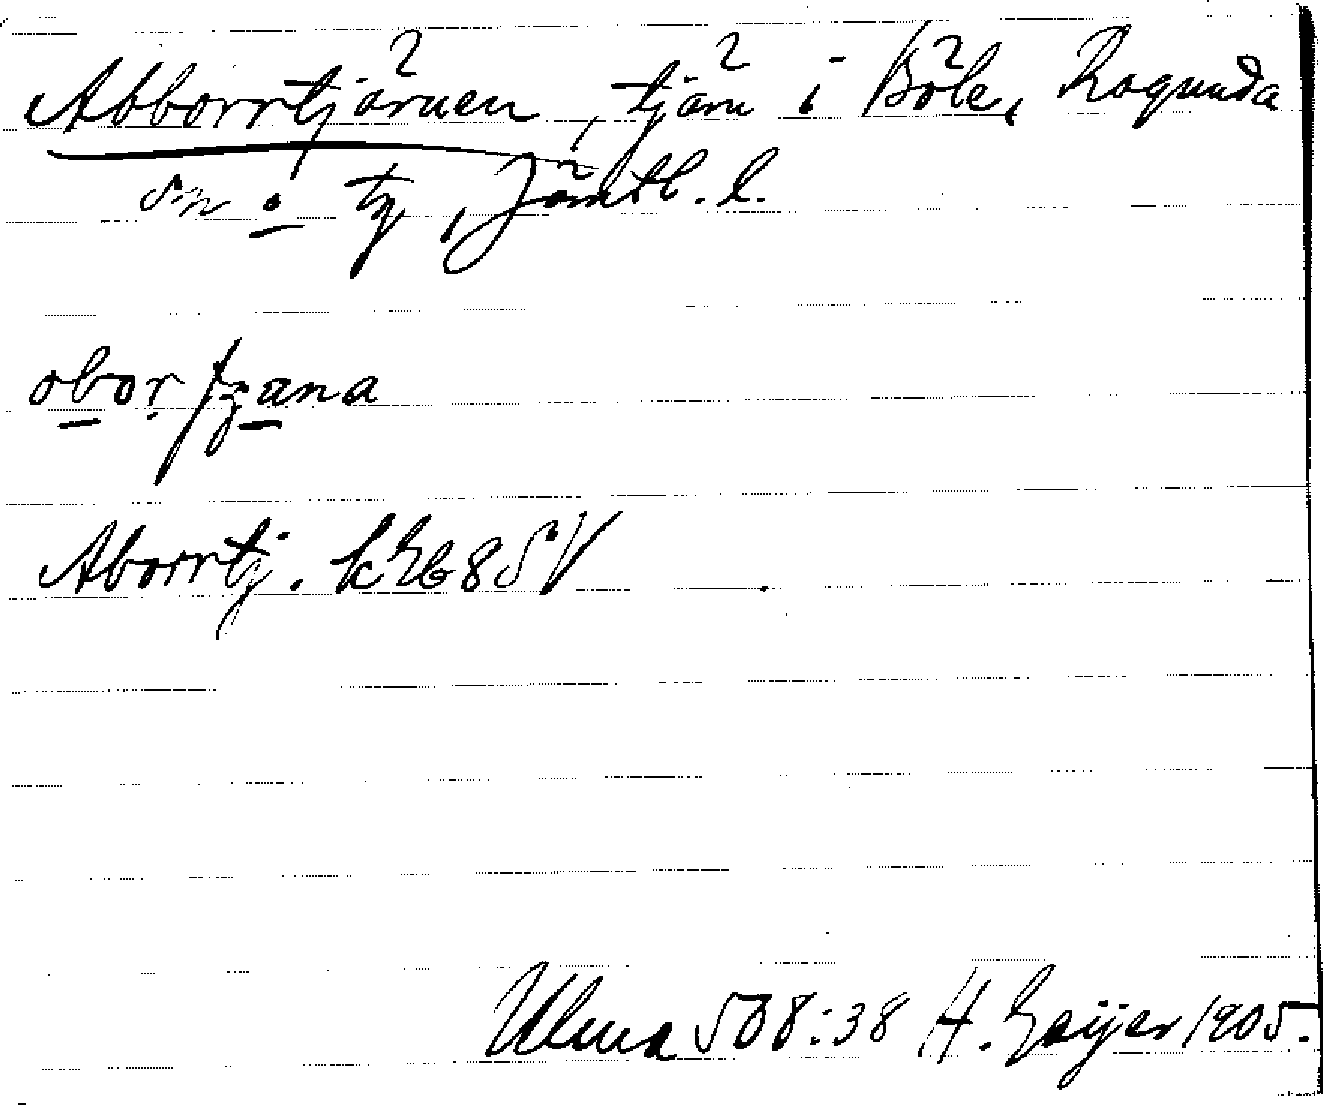 Abborrtjärnen, tjärn i Böle, Ragunda
sn o. tg, Jämtl. l.
oborʃʒäna
Aborrtj. kEb8SV
Ulma 508:38 H. Geijer 1905.